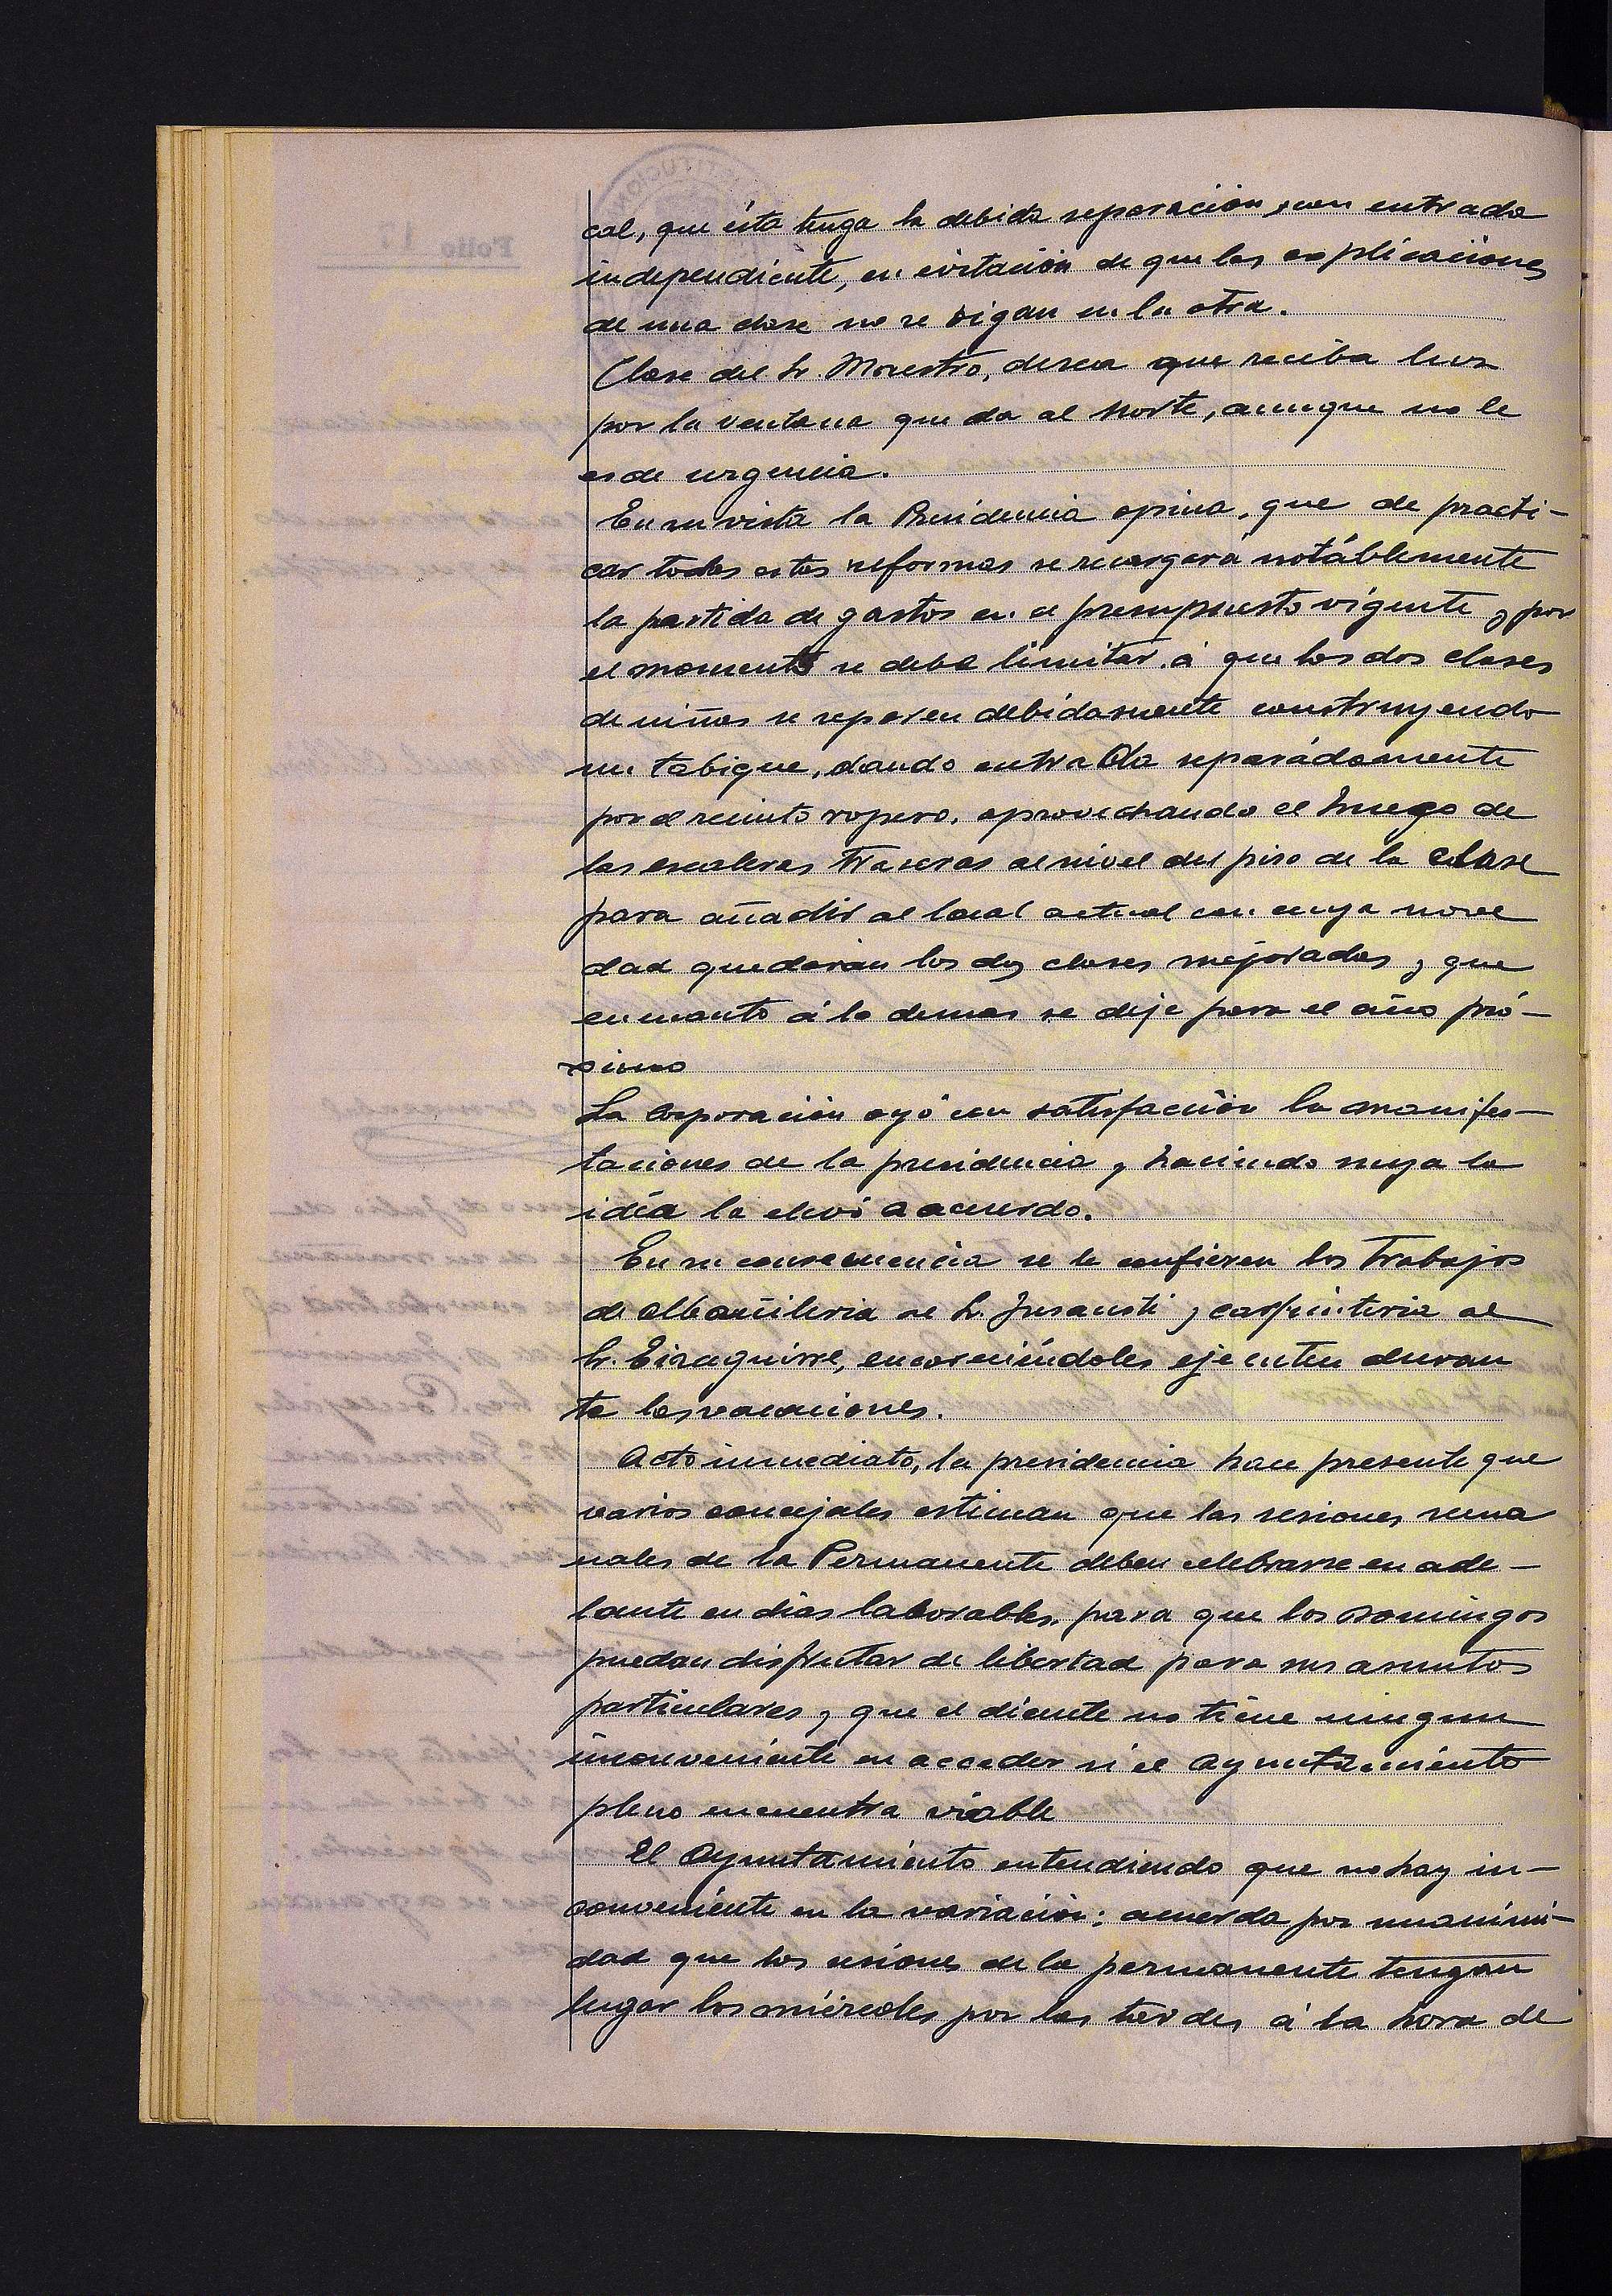 cal, que ésta tenga la debida separación y con entrada
independiente, en evitación de que las explicaciones
de una clase no se oigan en la otra.
Clase del Sr. Maestro, desea que reciba luz
por la ventana que da al Norte, aunque no le
es de urgencia.
En su vista la Presidencia opina, que de practi-
car todas estas reformas se recargará notáblemente
la partida de gastos en el presupuesto vigente y por
el momento se debe limitar á que las dos clases
de niñas se separen debidamente construyendo
un tabique, dando entrada separádamente
por el recinto ropero, aprovechando el hueco de
las escaleras traseras al nivel del piso de la clase
para añadir al local actual con cuya nove
dad quedarán las dos clases mejoradas y que
en cuanto á lo demas se deje para el año pró-
ximo
La Corporación oyó con satisfacción la manifes-
taciones de la presidencia y haciendo suya la
idéa la elevó a acuerdo.
En su consecuencia se le confieren los trabajos
de albañileria al Sr. Insausti y carpinteria al
Sr. Eizaguirre, encareciéndoles ejecuten duran
te las vacaciones.
Acto inmediato, la presidencia hace presente que
varios concejales estiman que las sesiones sema
nales de la Permanente deben celebrarse en ade-
lante en días laborables, para que los Domingos
puedan disfrutar de libertad para sus asuntos
particulares y que el dicente no tiene ningun
inconveniente en acceder si el Ayuntamiento
pleno encuentra viable
El Ayuntamiento entendiendo que no hay in-
conveniente en la variación; acuerda por unanimi-
dad que las sesiones de la permanente tengan
lugar los miércoles por las tardes á la hora de